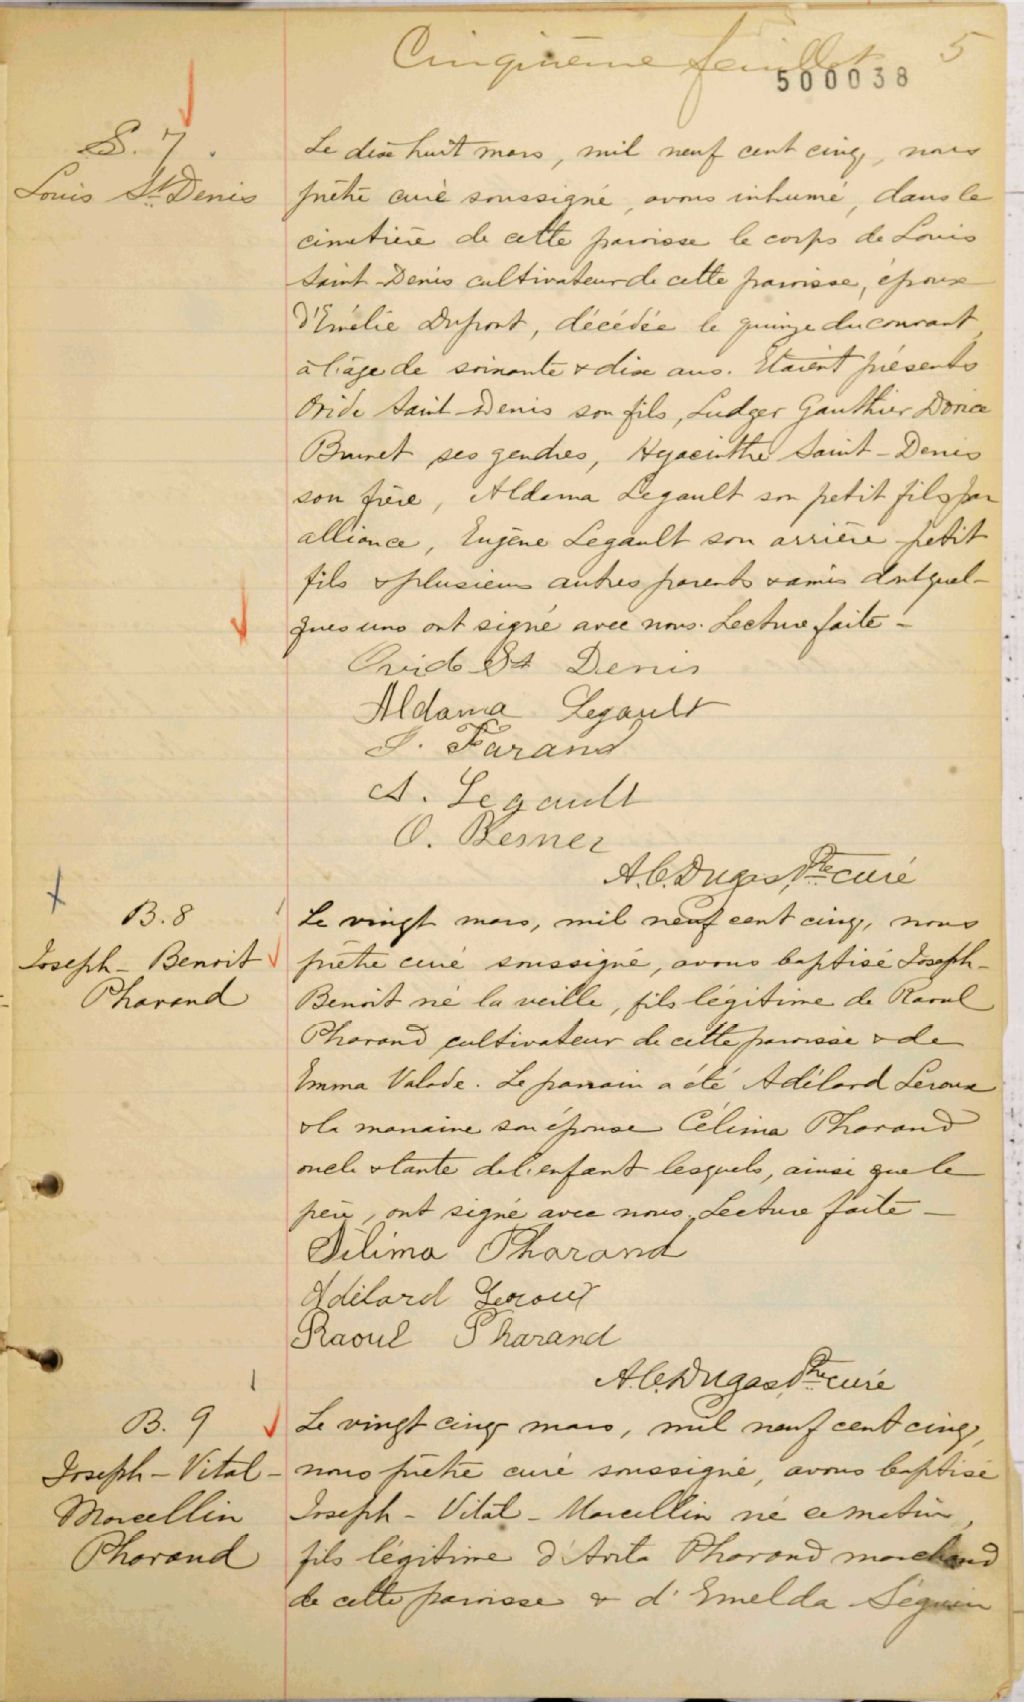 Cinquième feuillet 5
500038
S. 7.
Louis St. Denis
Le dix huit mars, mil neuf cent cinq, nous
prêtre curé soussigné, avons inhumé, dans le
cimetière de cette paroisse le corps de Louis
Saint-Denis cultivateur de cette paroisse, époux
d'Emélie Dupont, décédée le quinze du courant,
à l'âge de soixante & dix ans. Etaient présents
Ovide Saint-Denis son fils, Ludger Gauthier Dorice
Brunet ses gendres, Hyacinthe Saint-Denis
son frère, Aldama Legault son petit fils par
alliance, Eugène Legault son arrière petit
fils & plusieurs autres parents & amis dont quel-
ques uns ont signé avec nous. Lecture faite -
Ovide St Denis
Aldama Legault
J. Farand
A. Legault
O. Besner
A.C. Dugas, Ptre curé
B. 8
Joseph - Benoit
Pharand
Le vingt mars, mil neuf cent cinq, nous
prêtre curé soussigné, avons baptisé Joseph-
Benoit né la veille, fils légitime de Raoul
Pharand cultivateur de cette paroisse & de
Emma Valade. Le parrain a été Adélard Leroux
& la marraine son épouse Célima Pharand
oncle & tante de l'enfant lesquels, ainsi que le
père, ont signé avec nous. Lecture faite -
Célima Pharand
Adélard Leroux
Raoul Pharand
A.C. Dugas, Ptre curé
B. 9
Joseph - Vital -
Marcellin
Pharand
Le vingt cinq mars, mil neuf cent cinq,
nous prêtre curé soussigné, avons baptisé
Joseph - Vital - Marcellin né ce matin,
fils légitime d'Avila Pharand marchand
de cette paroisse & d'Emelda Séguin